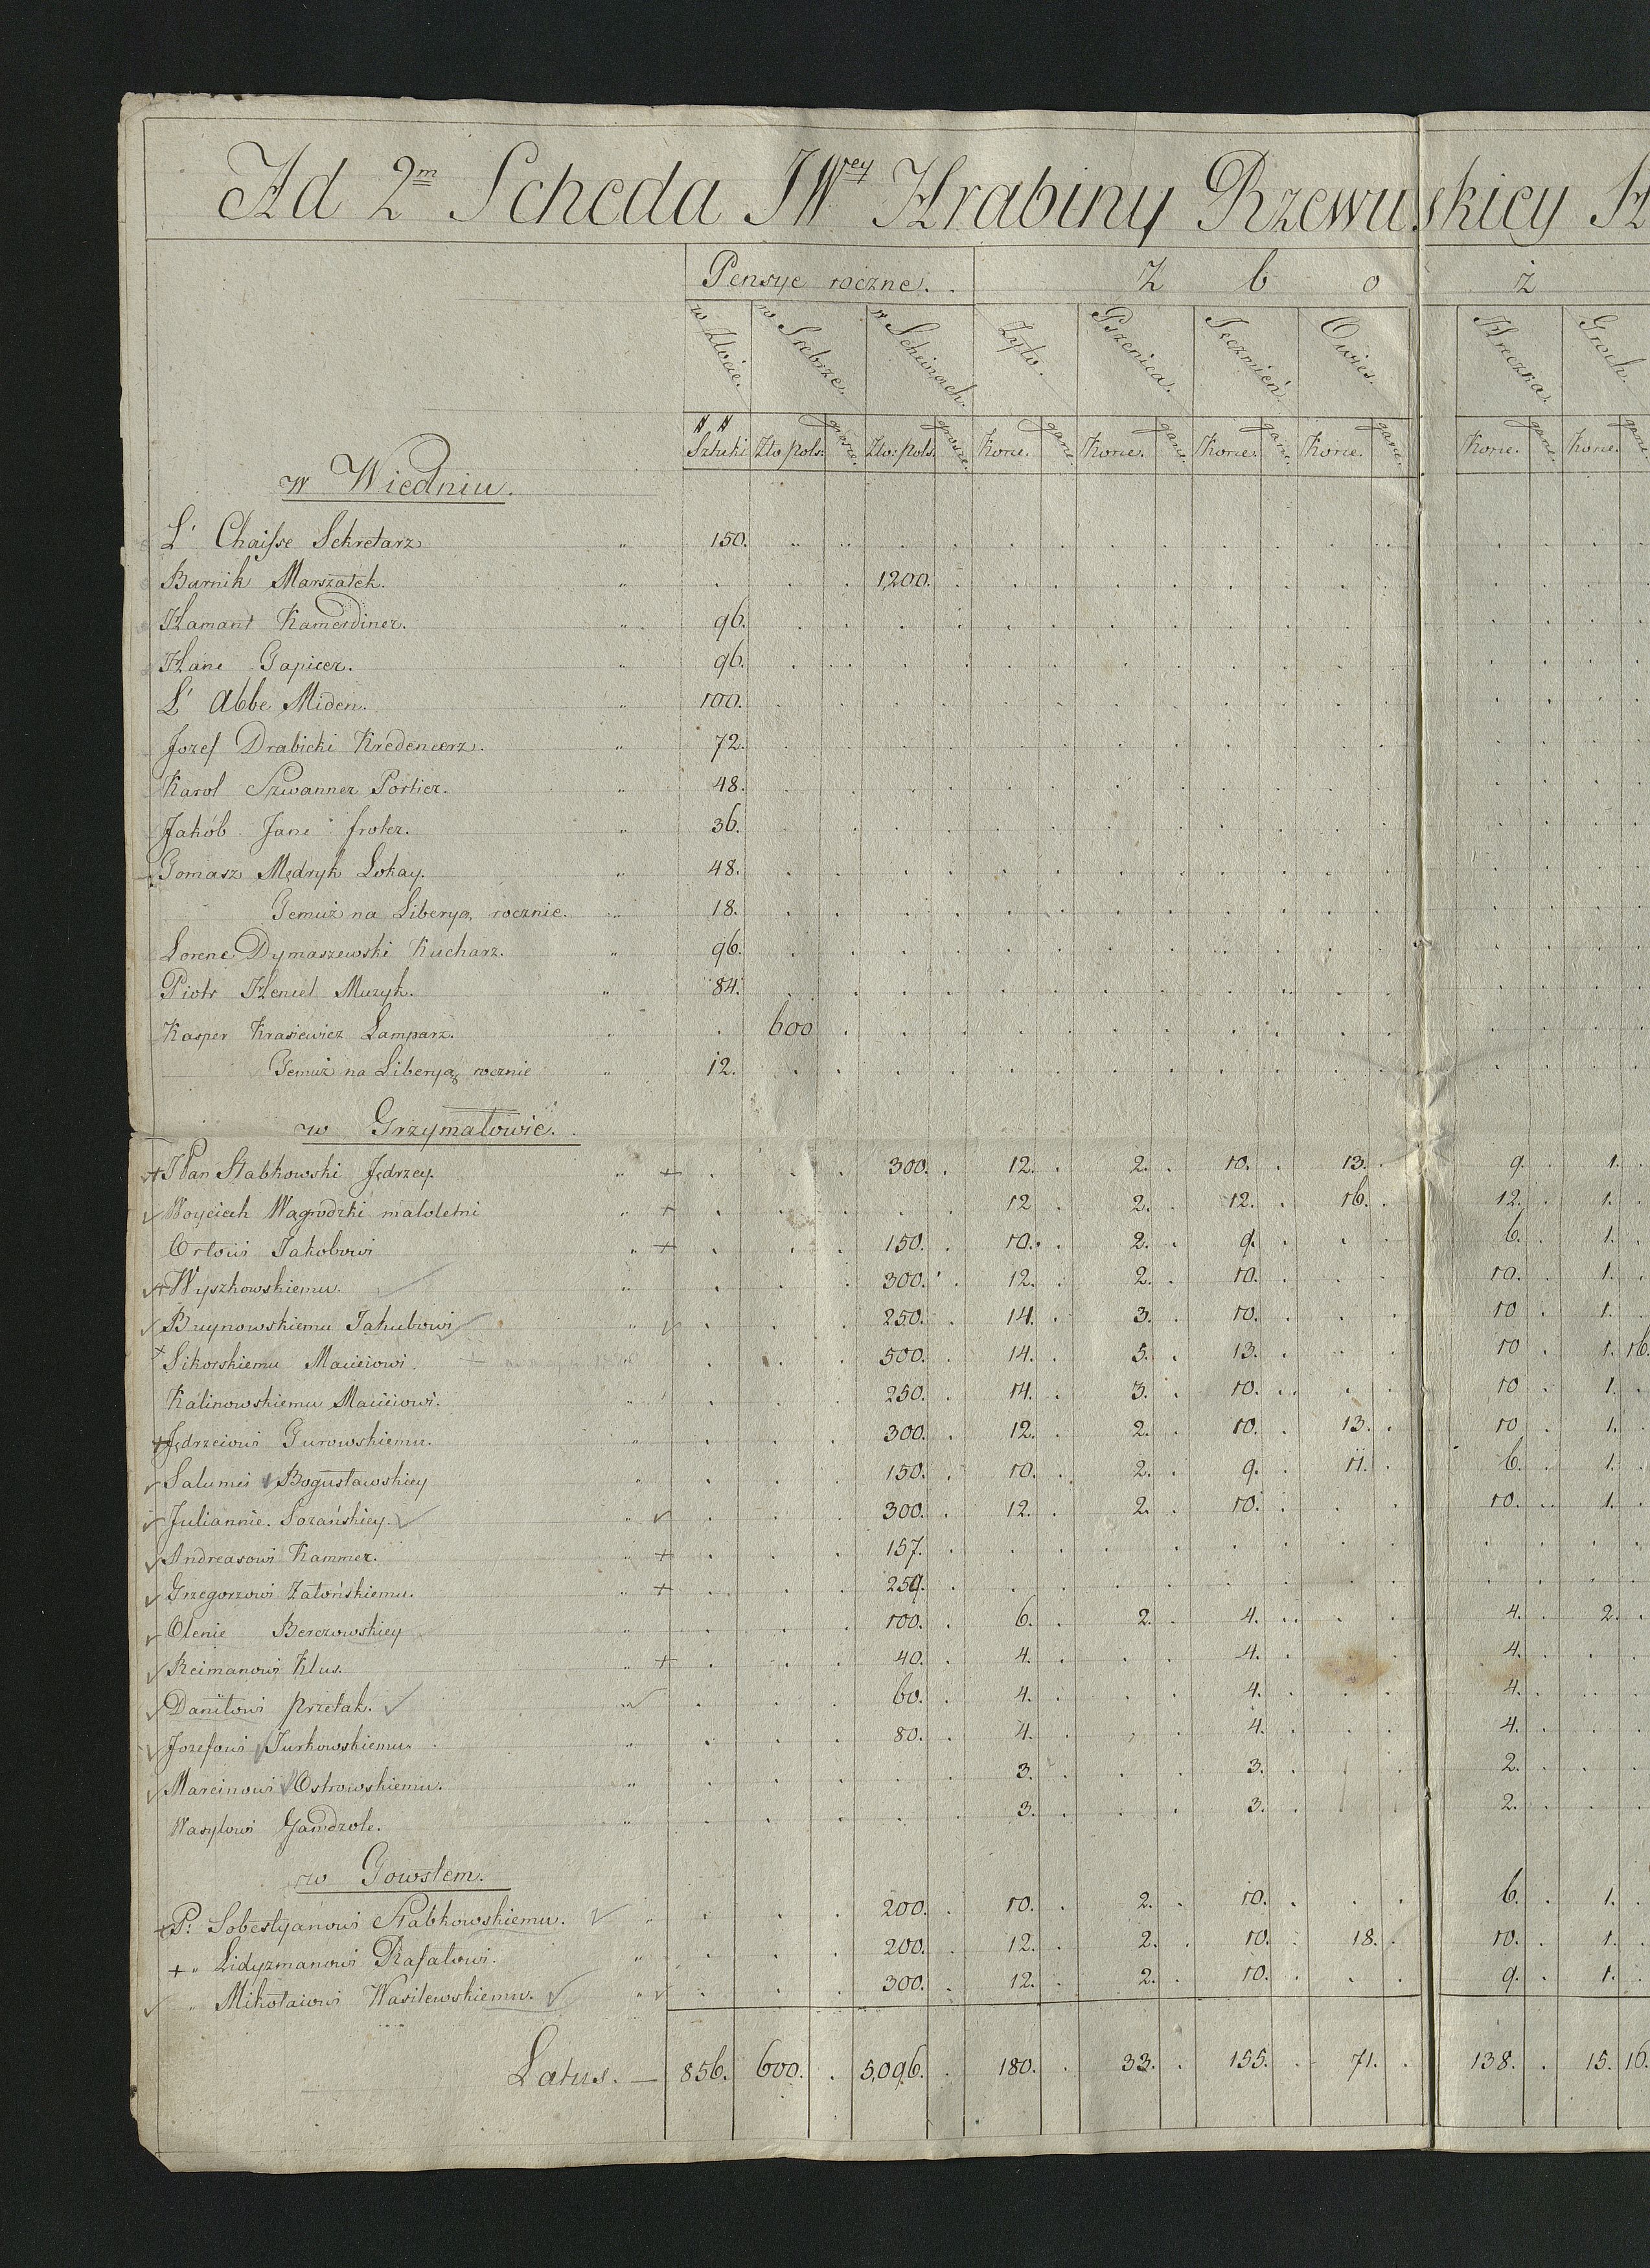 Ad 2m Scheda JWey Hrabiny Rzewuskiey H
Pensye roczne. Z b o ż
w Złocie. w Srebrze. w Scheinach. Zyto. Pszenica. Jęczmień. Owies. Hreczka. Groch.
## Sztuki Zło pols: grosze. Zło: pols. grosze. Korce. garne. Korce. garne. Korce. garne. Korce. garne. Korce. garne. Korce. garne.
w Wiedniu.
L' Chaisse Sekretarz " 150.
Burnik Marszałek. " 1,200.
Hamant Kamerdiner. " 96.
Hane Tapicer. " 96.
L' Abbe Miden. " 100.
Jozef Drabicki Kredencerz. " 72.
Karol Szwanner Portier. " 48.
Jakób Jane froter. " 36.
Tomasz Mędryk Lokay. " 48.
Temuż na Liberyą rocznie. " 18.
Lorenc Dymaszewski Kucharz. " 96.
Piotr Hencel Muzyk. " 84.
Kasper Krasiewicz Lamparz. " 600
Temuż na Liberyą rocznie " 12.
w Grzymałowie.
+ JPan Stabkowski Jędrzey. " + 300. 12. 2. 10. 13. 9. 1.
✓ Woyciech Wagrodzki małoletni " + 12 2. 12. 16. 12. 1.
Orłowi Jakobowi " + 150. 10. 2. 9. 6. 1.
✓+ Wyszkowskiemu. ✓ " 300. 12. 2. 10. 10. 1.
✓ Bruynowskiemu Jakubowi ✓ " ✓ 250. 14. 3. 10. 10 1.
+ Sikorskiemu Macieiowi. " 500. 14. 5. 13. 10 1. 16.
Kalinowskiemu Macieiowi. " 250. 14. 3. 10. 10 1.
+ Jędrzeiowi Gurowskiemu. " 300. 12. 2. 10. 13. 10 1.
✓ Salumei ✓ Bogusławskiey " 150. 10. 2. 9. 11. 6. 1.
✓ Juliannie Sozańskiey. ✓ " ✓ 300. 12. 2. 10. 10. 1.
✓ Andreasowi Kammer. " + 157.
✓ Grzegorzowi Zatońskiemu. " + 259.
✓ Olenie Berezowskiey " 100. 6. 2. 4. 4. 2.
✓ Reimanowi Klus. " + 40. 4. 4. 4.
✓ Daniłowi Przetak. ✓ " ✓ 60. 4. 4. 4.
✓ Jozefowi ✓ Turkowskiemu " 80. 4. 4. 4.
✓ Marcinowi ✓ Ostrowskiemu. " 3. 3. 2.
Wasylowi Gamdzole. " 3. 3. 2.
w Towstem.
+ P: Sobestyanowi Stabkowskiemu. ✓ " 200. 10. 2. 10. 6. 1.
+ " Lidyzmanowi Rafałowi. " 200. 12. 2. 10. 18. 10. 1.
✓ " Mikołaiowi Wasilewskiemu. ✓ " ✓ 300. 12. 2. 10. 9. 1.
Latus. — 856. 600. 5,096. 180. 33. 155. 71. 138. 15. 16.